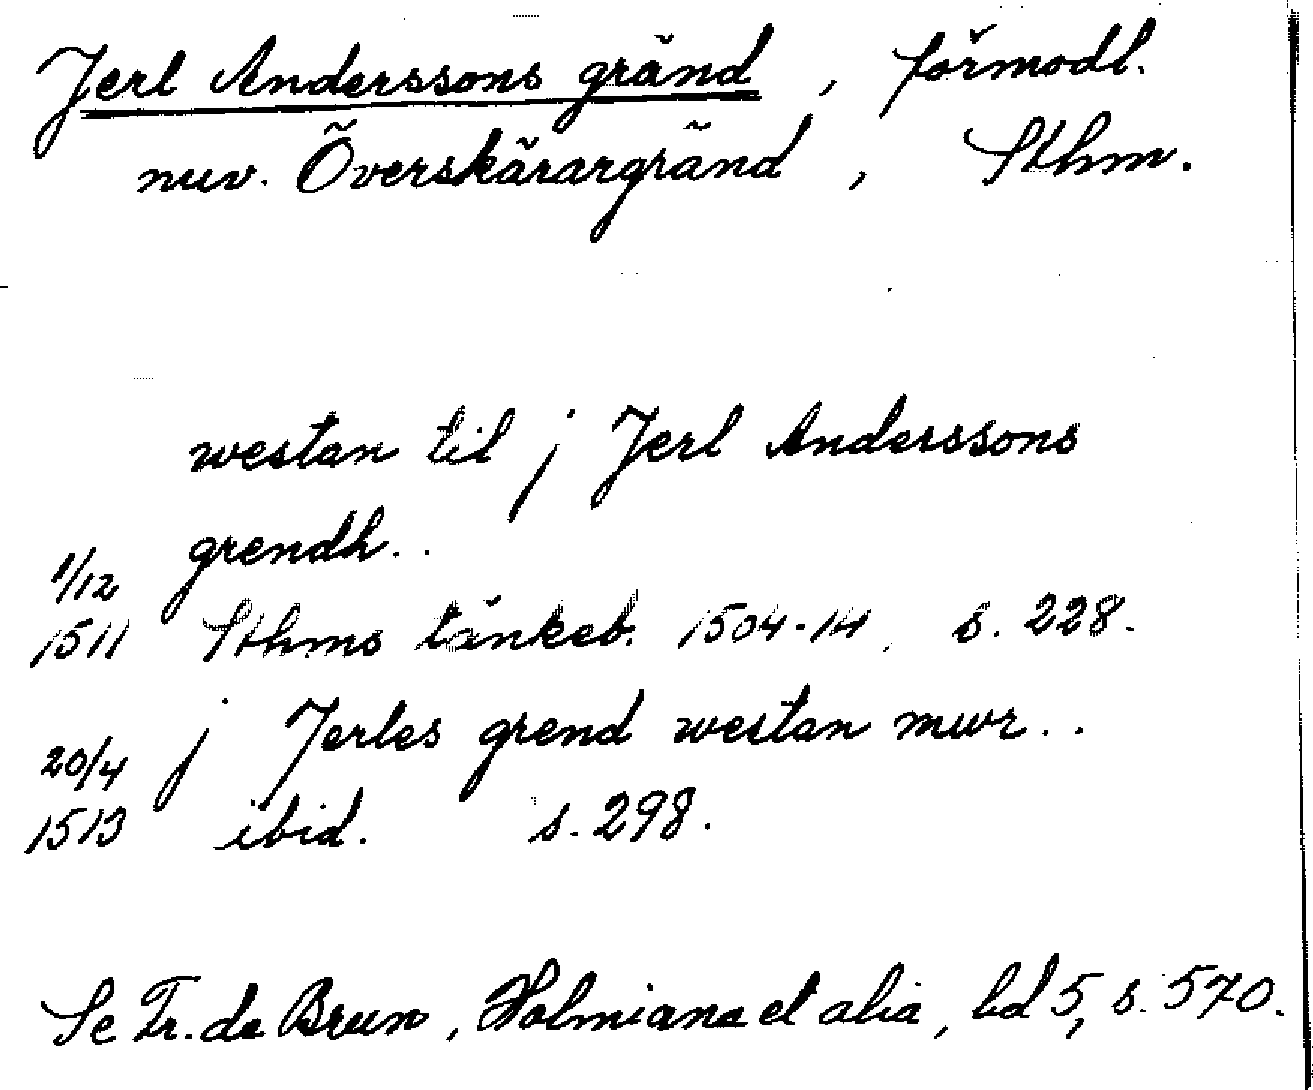 Jerl Anderssons gränd, förmodl.
nuv. Överskärargränd, Sthm.
westan til j Jerl Anderssons
grendh..
1/12
1511 Sthms tänkeb. 1504-14, s. 228.
j Jerles grend westan mwr..
20/4
1513 ibid. s. 298.
Se Fr. de Brun, Holmiana et alia, bd 5, s. 570.